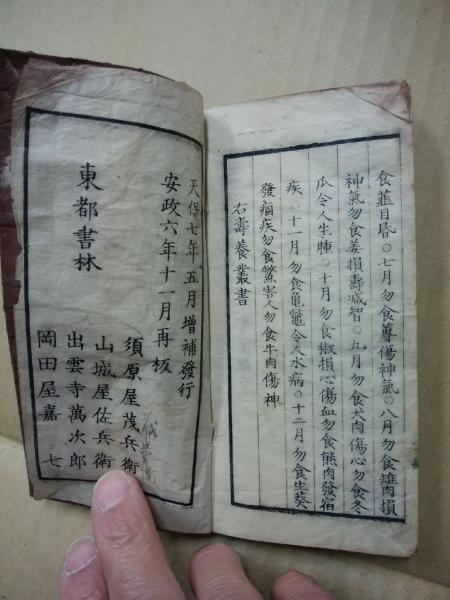 食韮目昏○七月勿食蓴傷神氣○八月勿食雉肉損
神氣勿食姜損壽減智○九月勿食犬肉傷心勿食冬
瓜令人生腫○十月勿食椒損心傷血勿食熊肉發宿
疾○十一月勿食龜鼈令人水病○十二月勿食生葵
發痼疾勿食鱉害人勿食牛肉傷神
右壽養叢書
天保七年五月増補發行
安政六年十一月再板
東都書林
須原屋茂兵衛
山城屋佐兵衛
出雲寺萬次郎
岡田屋嘉七